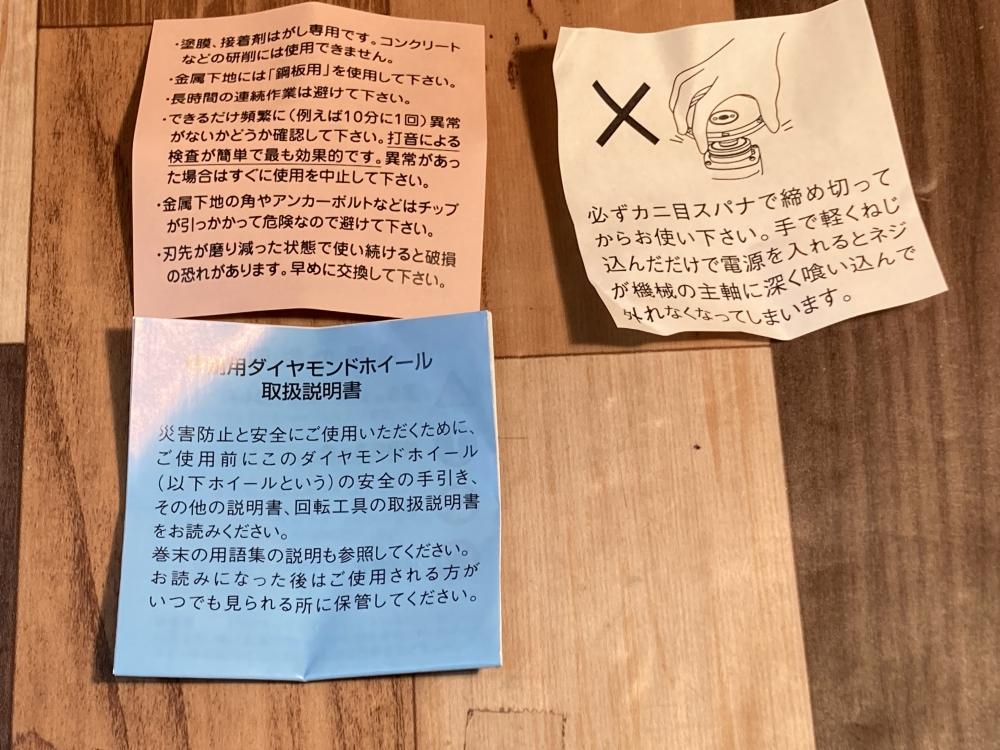 ・塗膜、接着剤はがし専用です。コンクリート
などの研削には使用できません。
・金属下地には「鋼板用」を使用して下さい。
・長時間の連続作業は避けて下さい。
・できるだけ頻繁に(例えば10分に1回)異常
がないかどうか確認して下さい。打音による
検査が簡単で最も効果的です。異常があっ
た場合はすぐに使用を中止して下さい。
・金属下地の角やアンカーボルトなどはチップ
が引っかかって危険なので避けて下さい。
・刃先が磨り減った状態で使い続けると破損
の恐れがあります。早めに交換して下さい。
必ずカニ目スパナで締め切って
からお使い下さい。手で軽くねじ
込んだだけで電源を入れるとネジ
が機械の主軸に深く喰い込んで
外れなくなってしまいます。
用ダイヤモンドホイール
取扱説明書
災害防止と安全にご使用いただくために、
ご使用前にこのダイヤモンドホイール
(以下ホイールという)の安全の手引き、
その他の説明書、回転工具の取扱説明書
をお読みください。
巻末の用語集の説明も参照してください。
お読みになった後はご使用される方が
いつでも見られる所に保管してください。